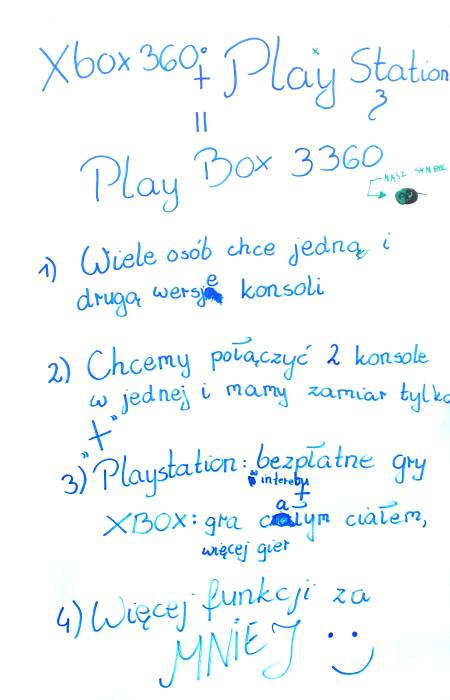 Xbox 360° + Play Station 3
=
Play Box 3360
NASZ SYMBOL
1) Wiele osób chce jedną i
drugą wersję konsoli
2) Chcemy połączyć 2 konsole
w jednej i mamy zamiar tylko
"+"
3) Playstation: bezpłatne gry
+
XBOX: gra całym ciałem,
więcej gier
4) Więcej funkcji za
MNIEJ